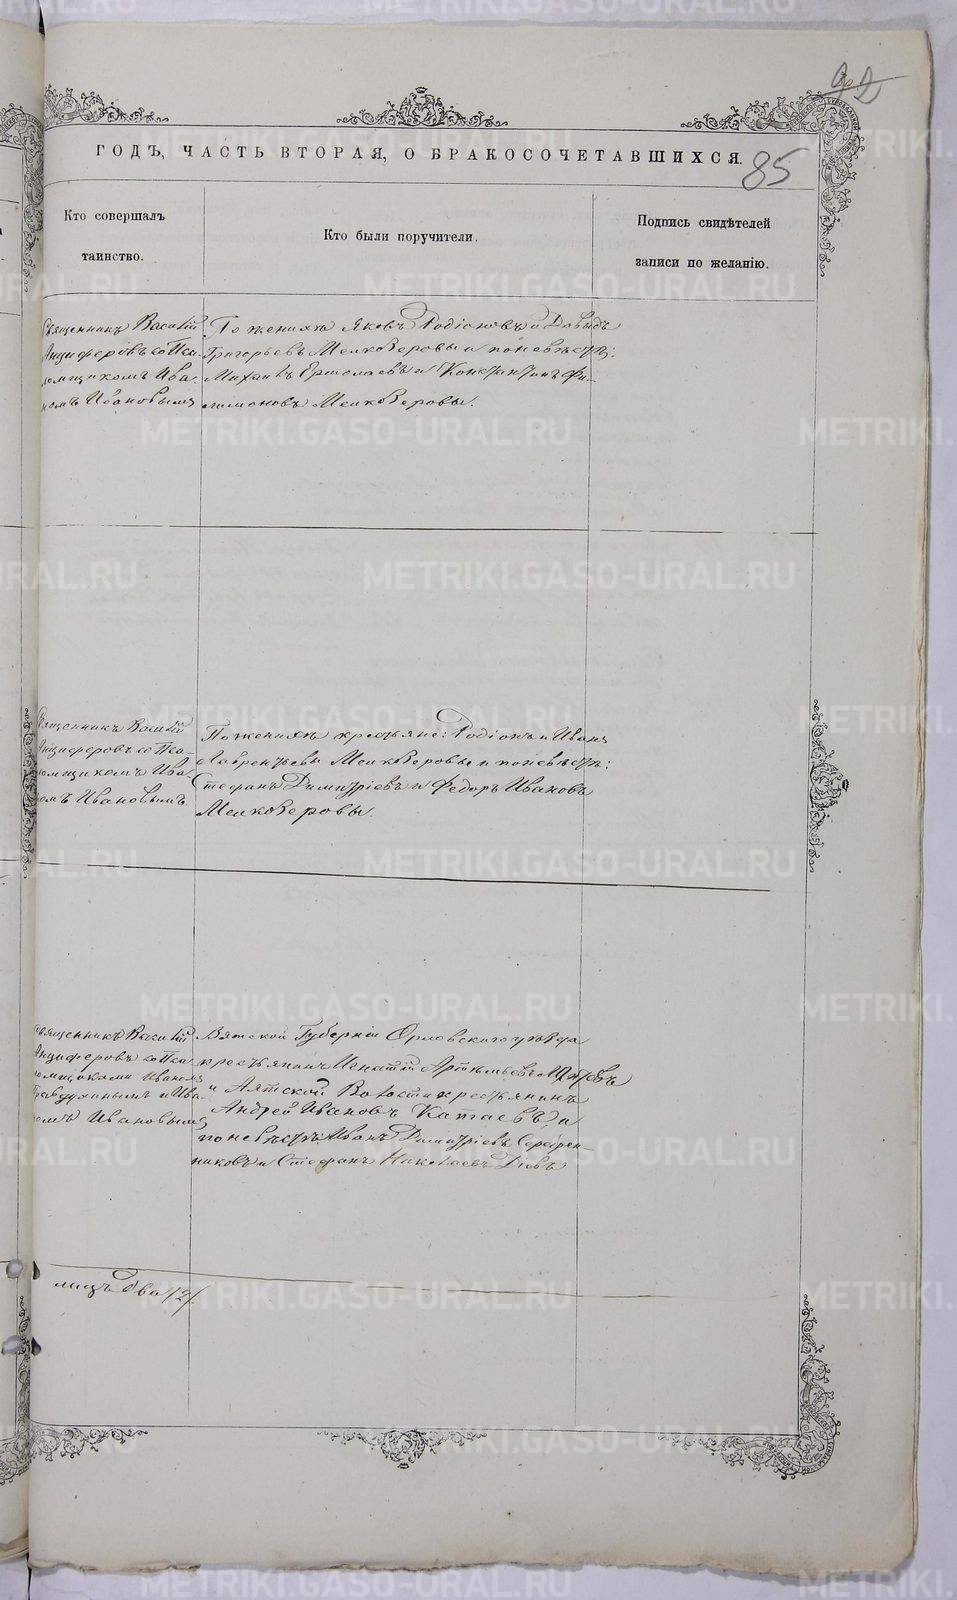 92
ГОДЪ, ЧАСТЬ ВТОРАЯ, О БРАКОСОЧЕТАВШИХСЯ.
85
Кто совершалъ
таинство.
Кто были поручители.
Подпись свидѣтелей
записи по желанію.
Священникъ Василій
Анциферовъ со Пса-
ломщикомъ Ива-
номъ Ивановымъ
По женихѣ Яковъ Родіоновъ и Давидъ
Григорьевъ Мелкозеровы и по невѣстѣ:
Михаилъ Ермолаевъ и Константинъ Фи-
лимоновъ Мелкозеровы.
Священникъ Василій
Анциферовъ со Пса-
ломщикомъ Ива-
номъ Ивановымъ
По женихѣ крестьяне: Родіонъ и Иванъ
Лаврентьевы Мелкозеровы и по невѣстѣ:
Стефанъ Димитріевъ и Федоръ Ивановъ
Мелкозеровы.
Священникъ Василій
Анциферовъ со Пса-
ломщиками Иваномъ
и Ива-
номъ Ивановымъ
Вятской Губерніи Орловскаго уѣзда
крестьянинъ Игнатій Артемьевъ
и Аятской Волости крестьянинъ
Андрей Ивановъ Катаевъ и
по невѣстѣ: Иванъ Димитріевъ Серебрен-
никовъ и Стефанъ Николаевъ Діевъ
лицъ два /2/.
METRIKI.GASO-URAL.RU